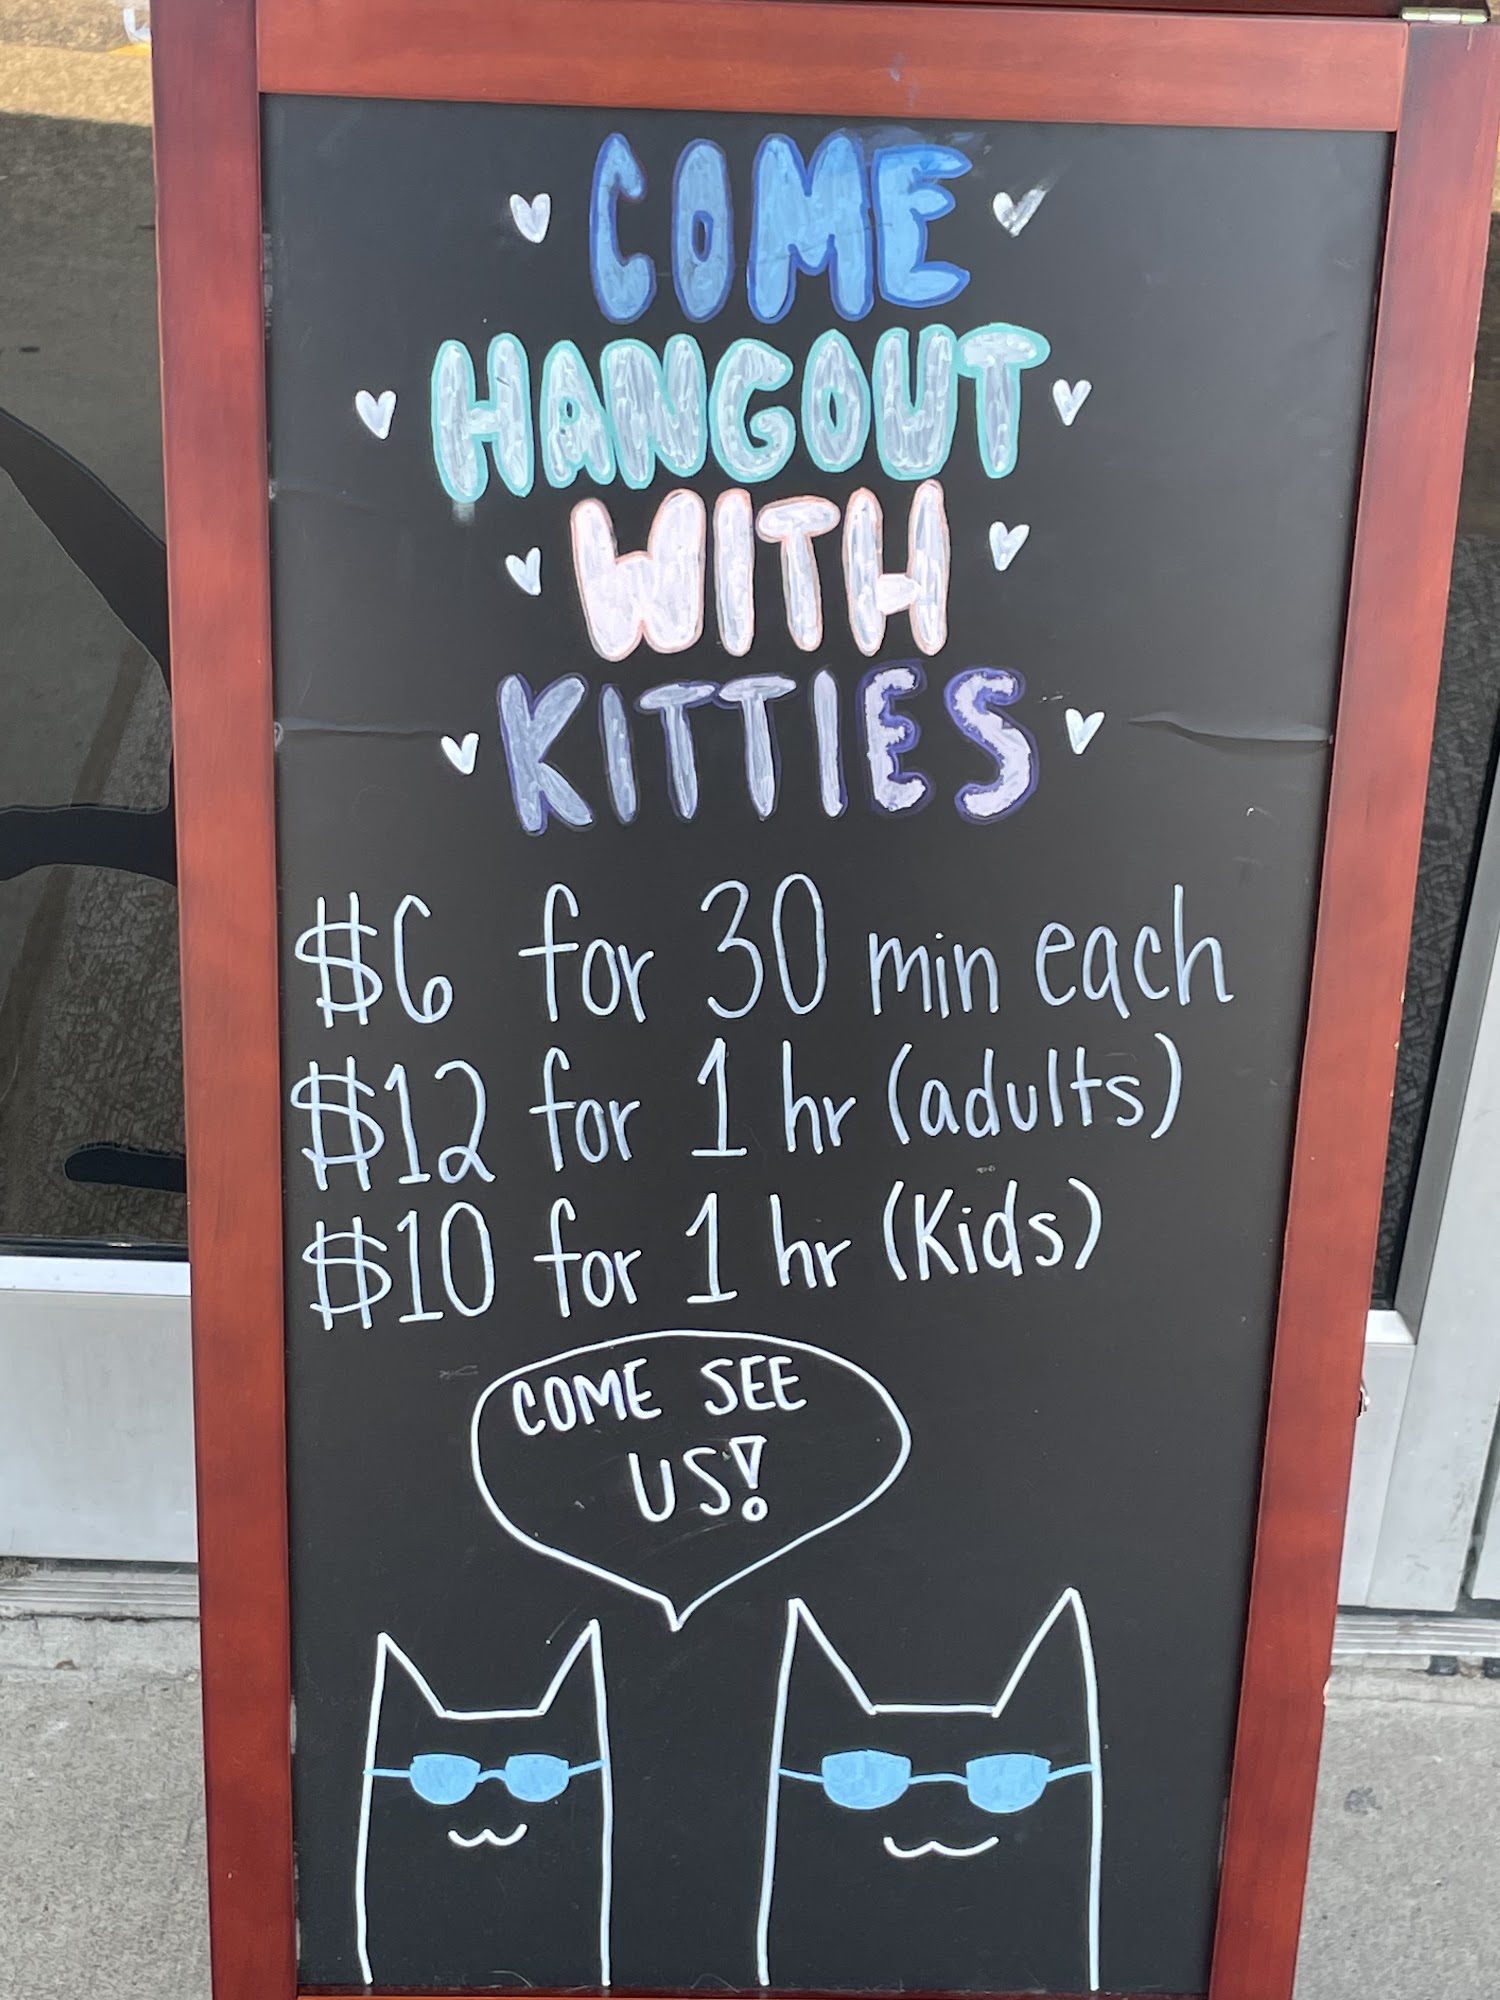 COME
HANGOUT
WITH
KITTIES
$6 for 30 min each
$12 for 1 hr (adults)
$10 for 1 hr (Kids)
COME SEE
US!